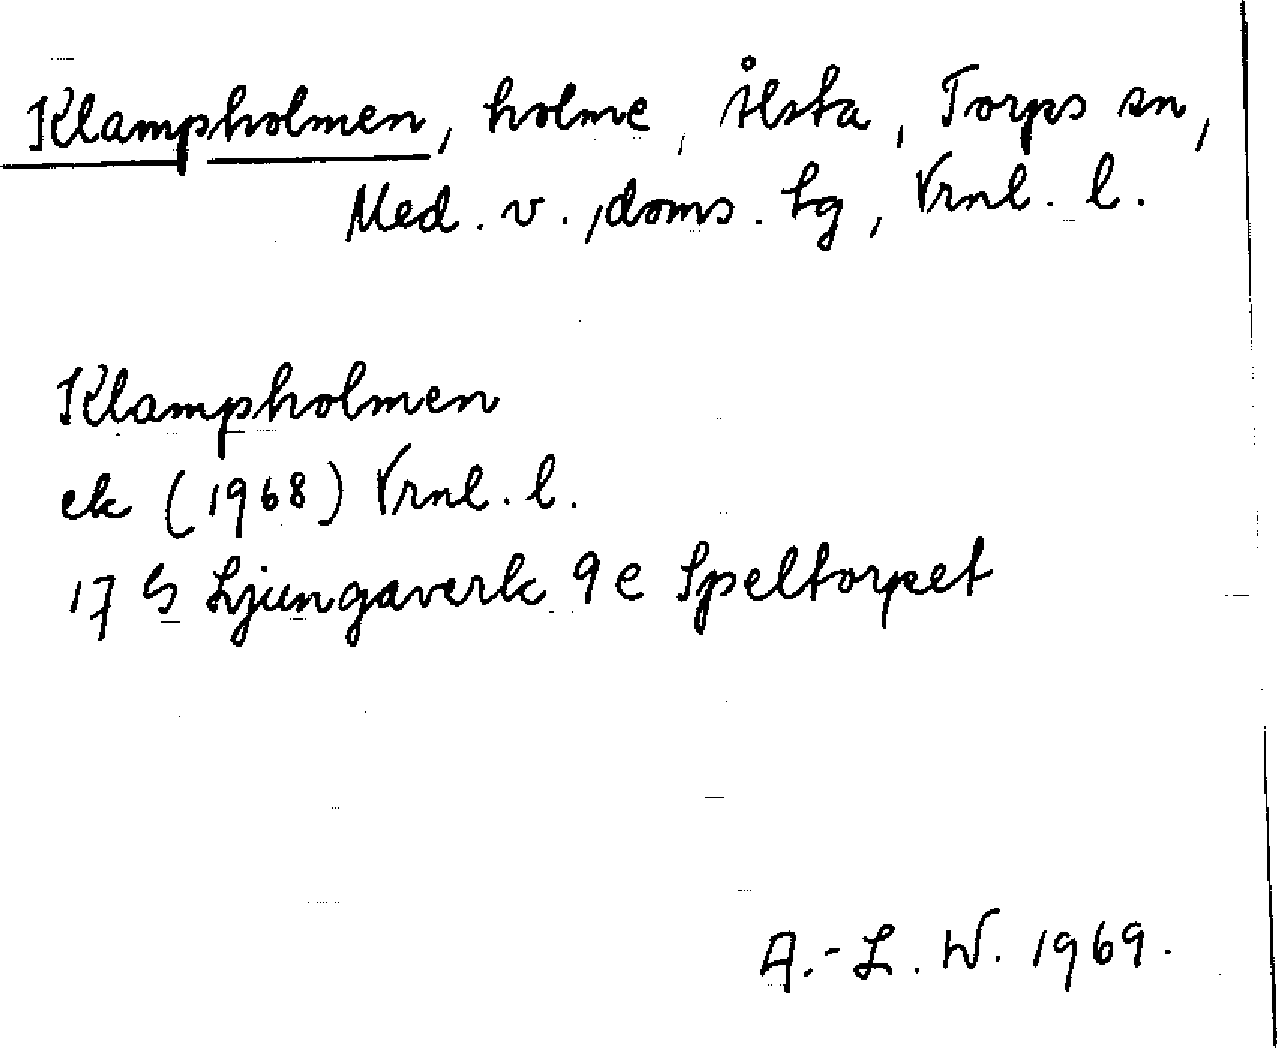 Klampholmen, holme, Ålsta, Torps sn,
Med. v., doms. lg, Vrnl. l.
Klampholmen
ek (1968) Vrnl. l.
17 G Ljungaverk 9 e Speltorpet
A.-L. W. 1969.